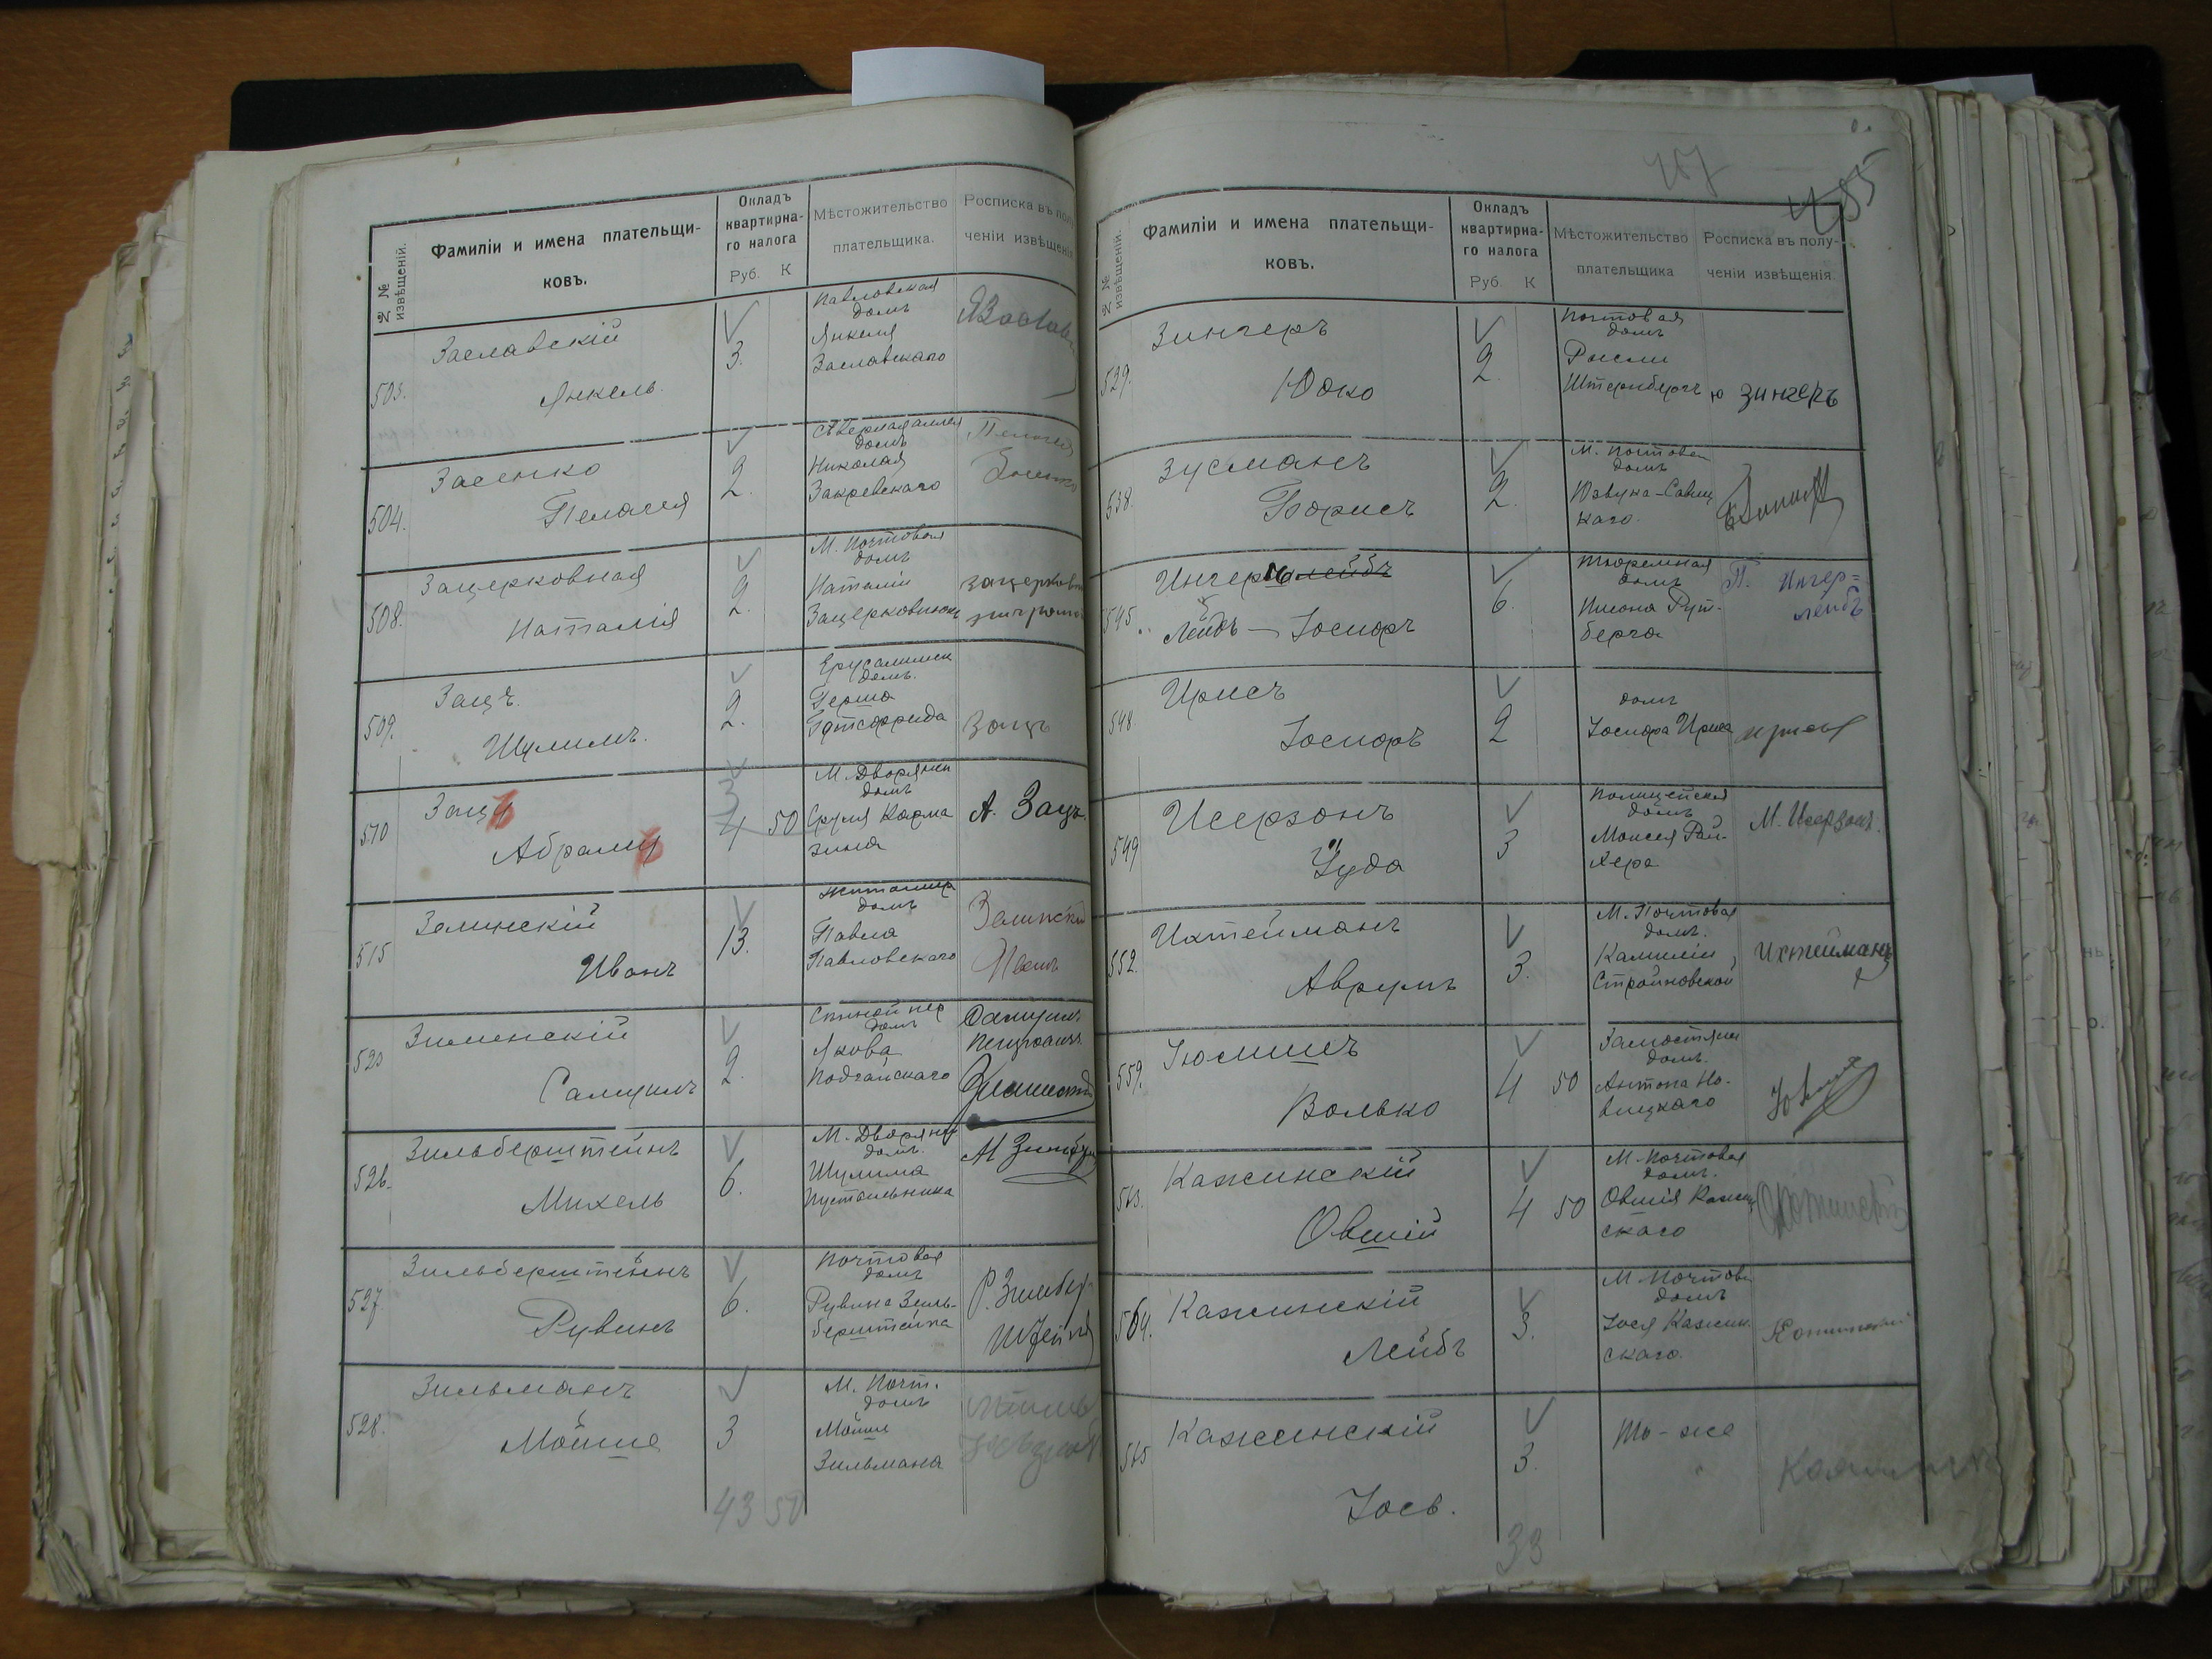 №№ извѣщеній.
Фамиліи и имена плательщи-
ковъ.
Окладъ
квартирна-
го налога
Руб. К
Мѣстожительство
плательщика.
Росписка въ полу-
ченіи извѣщенія
503.
Заславскій
Янкель
3.
Павловская
домъ
Янкеля
Заславскаго
504.
Засенко
Пелагея
2.
домъ
Николая
Закревскаго
Пелагея
508.
Зацерковная
Наталія
2.
М. Почтовая
домъ
Наталіи
Зацерковной
509.
Зацъ
Шулимъ.
2.
домъ.
Герша
Зацъ
510
Заць
Абрамъ
4 50
М. Дворянск
домъ
Сруля Карма
зина
А. Зацъ.
515
Зелинскій
Иванъ
13.
Житомир
домъ
Павла
Павловскаго
Зелинскій
Иванъ
523
Зименскій
Самуилъ
2.
домъ
Якова
Подгайскаго
526.
Зильберштейнъ
Михель
6.
М. Дворянск
домъ.
Шулима
Пустыльника
527
Зильберштейнъ
Рувинъ
6.
Почтовая
домъ
Рувина Зиль-
берштейна
Р. Зильбер
Штейнъ
528.
Зильманъ
Мойше
3
М. Почт.
домъ
Мойше
Зильмана
43 50
757
455
№№ извѣщеній.
Фамиліи и имена плательщи-
ковъ.
Окладъ
квартирна-
го налога
Руб. К
Мѣстожительство
плательщика
Росписка въ полу-
ченіи извѣщенія.
529.
Зингеръ
Юско
2
Почтовая
домъ
Штернбергъ
Ю Зингеръ
538.
Зусманъ
Борисъ
2.
М. Почтовая
домъ
Юзвука-Савиц
каго.
545
Лейбъ - Іосифъ
6.
Тюремная
домъ
Нисона Рут-
берга
П. Ингер=
лейбъ
548.
Ирисъ
Іосифъ
2
домъ
Іосифа Ириса
549
Исерзонъ
Іуда
3
Полицейская
домъ
Моисея Рай-
хера
М. Исерзонъ.
552.
Ихтейманъ
Аврумъ
3.
М. Почтовая
домъ.
Камиліи
Стройновской
Ихтейманъ
559.
Іюлишъ
Волько
4 50
Замостянск
домъ.
Антона Но-
вицкаго
563.
Кажинскій
Овшій
4 50
М. Почтовая
домъ.
Овшія Кажин
скаго
564.
Кажинскій
Лейбъ
3.
М. Почтовая
домъ
Іося Кажин
скаго.
565
Кажинскій
Іось.
3.
То-же
33